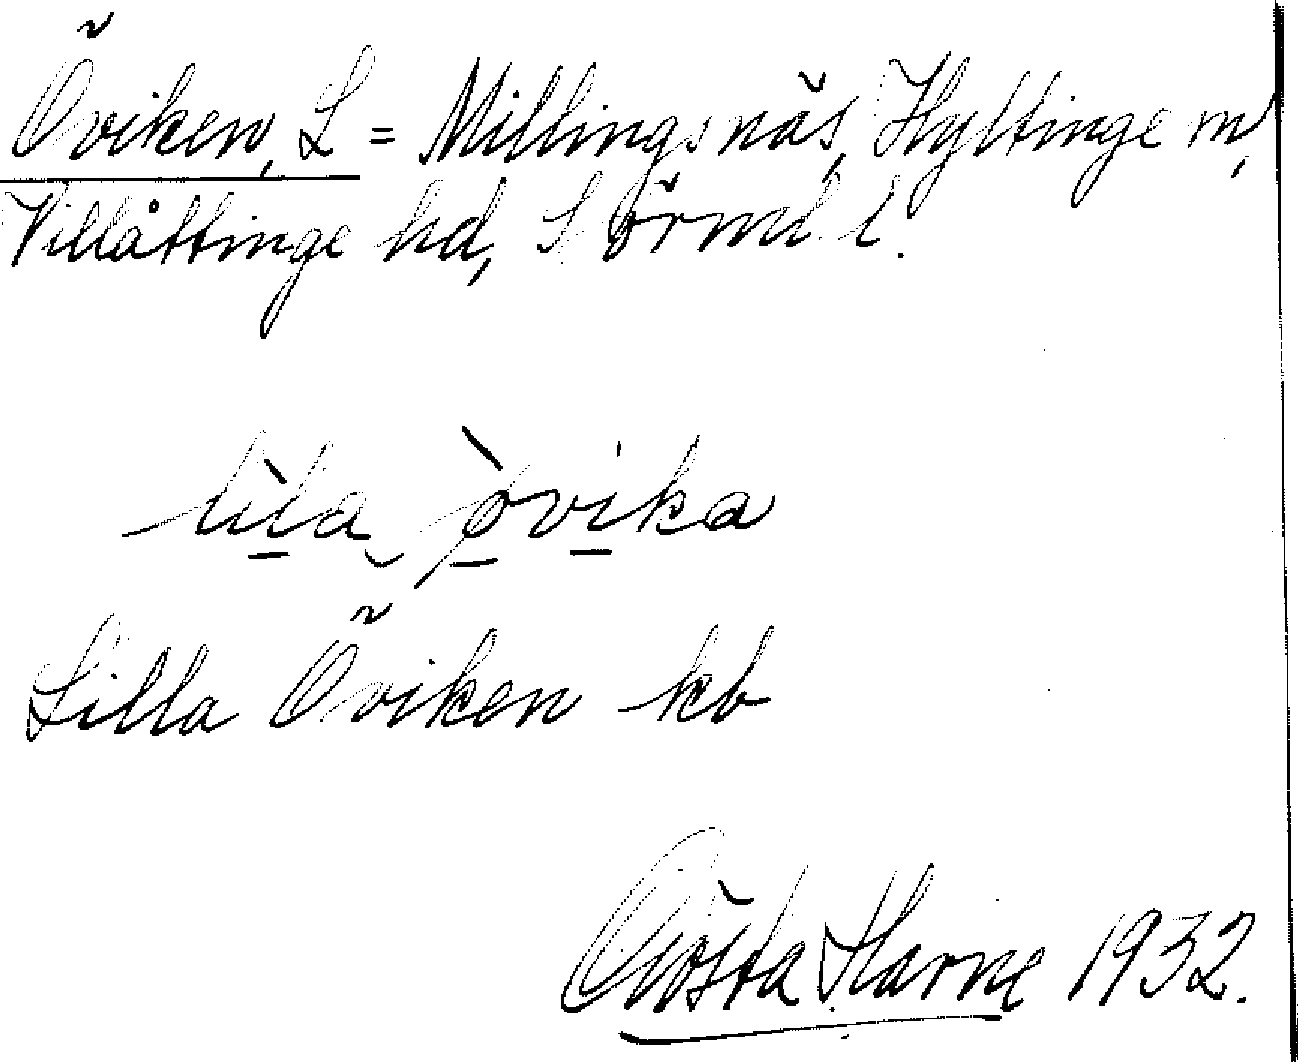 Öviken, L = Millingsnäs, Hyltinge sn,
Villåttinge hd, Sörml. l.
lìla òvika
Lilla Öviken kb
Gösta Harne 1932.